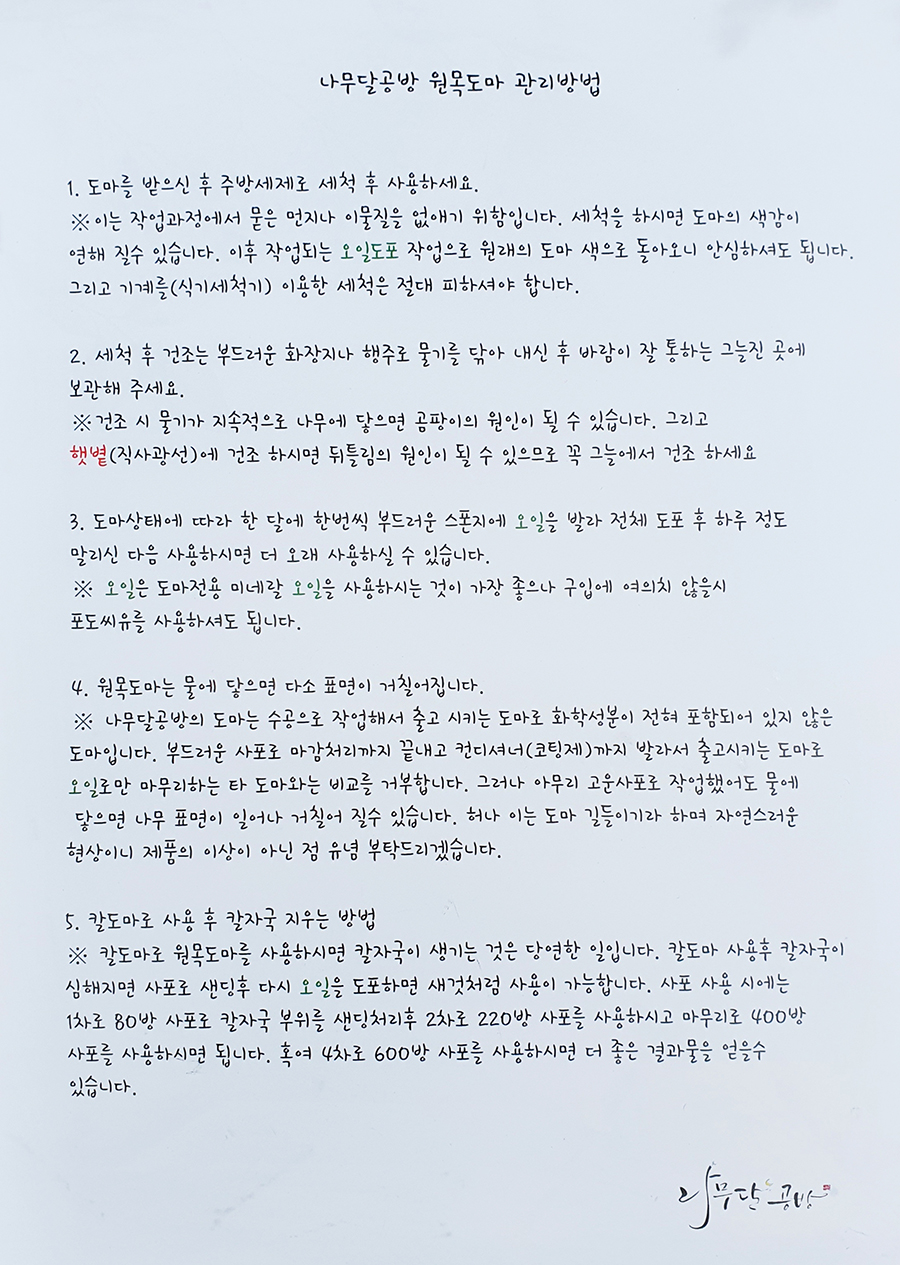 나무달공방 원목도마 관리방법
1. 도마를 받으신 후 주방세제로 세척 후 사용하세요.
※이는 작업과정에서 묻은 먼지나 이물질을 없애기 위함입니다. 세척을 하시면 도마의 색감이
연해 질수 있습니다. 이후 작업되는 오일도포 작업으로 원래의 도마 색으로 돌아오니 안심하셔도 됩니다.
그리고 기계를(식기세척기) 이용한 세척은 절대 피하셔야 합니다.
2. 세척 후 건조는 부드러운 화장지나 행주로 물기를 닦아 내신 후 바람이 잘 통하는 그늘진 곳에
보관해 주세요.
※건조 시 물기가 지속적으로 나무에 닿으면 곰팡이의 원인이 될 수 있습니다. 그리고
햇볕(직사광선)에 건조 하시면 뒤틀림의 원인이 될 수 있으므로 꼭 그늘에서 건조 하세요
3. 도마상태에 따라 한 달에 한번씩 부드러운 스폰지에 오일을 발라 전체 도포 후 하루 정도
말리신 다음 사용하시면 더 오래 사용하실 수 있습니다.
※ 오일은 도마전용 미네랄 오일을 사용하시는 것이 가장 좋으나 구입에 여의치 않을시
포도씨유를 사용하셔도 됩니다.
4. 원목도마는 물에 닿으면 다소 표면이 거칠어집니다.
※ 나무달공방의 도마는 수공으로 작업해서 출고 시키는 도마로 화학성분이 전혀 포함되어 있지 않은
도마입니다. 부드러운 사포로 마감처리까지 끝내고 컨디셔너(코팅제)까지 발라서 출고시키는 도마로
오일로만 마무리하는 타 도마와는 비교를 거부합니다. 그러나 아무리 고운사포로 작업했어도 물에
닿으면 나무 표면이 일어나 거칠어 질수 있습니다. 허나 이는 도마 길들이기라 하며 자연스러운
현상이니 제품의 이상이 아닌 점 유념 부탁드리겠습니다.
5. 칼도마로 사용 후 칼자국 지우는 방법
※ 칼도마로 원목도마를 사용하시면 칼자국이 생기는 것은 당연한 일입니다. 칼도마 사용후 칼자국이
심해지면 사포로 샌딩후 다시 오일을 도포하면 새것처럼 사용이 가능합니다. 사포 사용 시에는
1차로 80방 사포로 칼자국 부위를 샌딩처리후 2차로 220방 사포를 사용하시고 마무리로 400방
사포를 사용하시면 됩니다. 혹여 4차로 600방 사포를 사용하시면 더 좋은 결과물을 얻을수
있습니다.
나무달공방